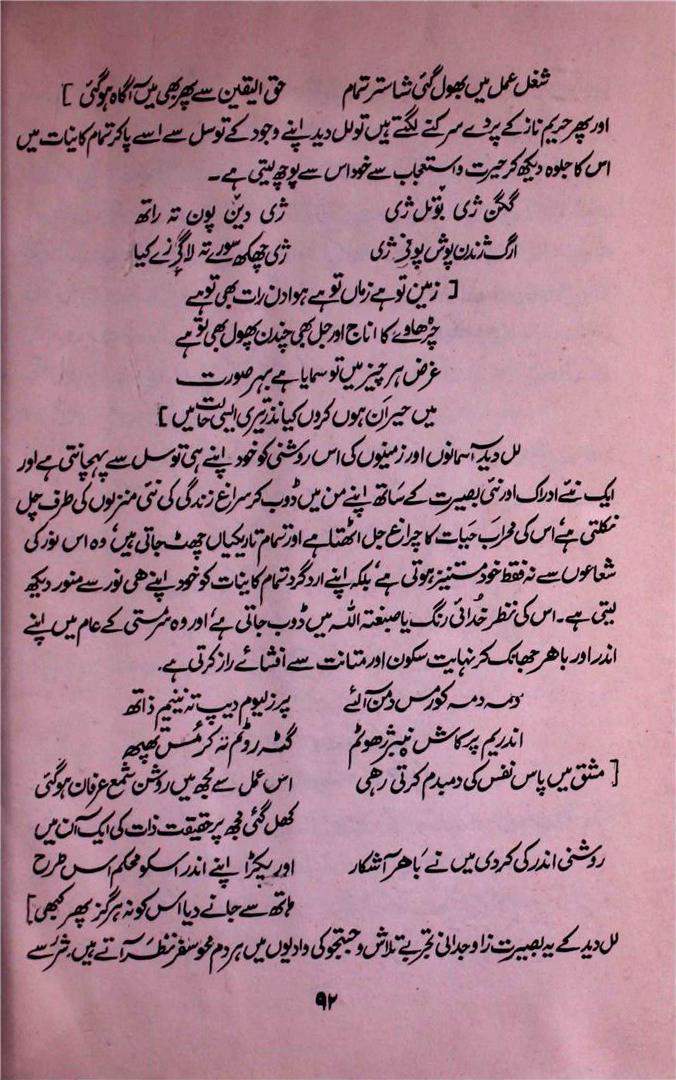 شغل عمل میں بھول گئی شاستر تمام حق الیقین سے پھر بھی میں آگاہ ہوگئی ]
اور پھر حریم ناز کے پردے سرکنے لگتے ہیں تو لل دید اپنے وجود کے توسل سے اسے پاکر تمام کاینات میں
اس کا جلوہ دیکھ کر حیرت و استعجاب سے خود اس سے پوچھ لیتی ہے۔
گگن ژی بوٗتل ژی ژی دین پون تہ راتھ
ارگ ژندن پوش پونی ژی ژی چھکھ سورے تہ لاگی زے کیا
[ زمین تو ہے زماں تو ہے ہوا دن رات بھی تو ہے
چڑھاوے کا اناج اور جل بھی چندن پھول بھی تو ہے
غرض ہر چیز میں تو سمایا ہے بہر صورت
میں حیران ہوں کروں کیا نذر تیری ایسی حالت میں ]
لل دید آسمانوں اور زمینوں کی اس روشنی کو خود اپنے ہی توسل سے پہچانتی ہے اور
ایک نئے ادراک اور نئی بصیرت کے ساتھ اپنے من میں ڈوب کر سراغ زندگی کی نئی منزلوں کی طرف چل
نکلتی ہے، اس کی محراب حیات کا چراغ جل اٹھتا ہے اور تمام تاریکیاں چھٹ جاتی ہیں، وہ اس نور کی
شعاعوں سے نہ فقط خود مستنیر ہوتی ہے، بلکہ اپنے اردگرد تمام کاینات کو خود اپنے ھی نور سے منور دیکھ
لیتی ہے۔ اس کی نظر خدائی رنگ یا صبغتہ اللہ میں ڈوب جاتی ہے، اور وہ سرمستی کے عام میں اپنے
اندر اور باھر جھانک کر نہایت سکون اور متانت سے افشائے راز کرتی ہے۔
دمہ دمہ کورمس دمن آلئے پرزلیوم دیپ تہ ننیم ذاتھ
اندریم پرکاش نیبر ژھوٹم گٹہ روٹم تہ کرمس تھپھ
[ مشق میں پاس نفس کی دمبدم کرتی رھی اس عمل سے مجھ میں روشن شمع عرفان ہوگئی
کھل گئی مجھ پر حقیقت ذات کی ایک آن میں
روشنی اندر کی کردی میں نے باھر آشکار اور پکڑا اپنے اندر اسکو محکم اس طرح
ہاتھ سے جانے دیا اس کو نہ ہرگز پھر کبھی ]
لل دید کے یہ بصیرت زا وجدانی تجربے تلاش و جستجو کی وادیوں میں ہر دم محو سفر نظر آتے ہیں، شر سے
۹۲